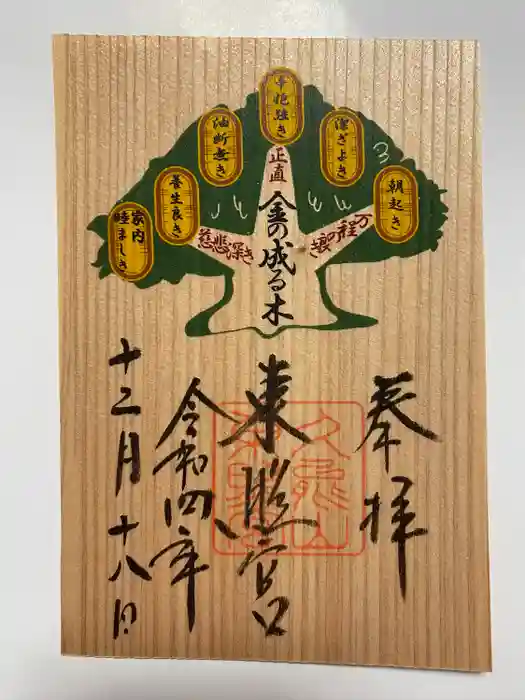 朝起き
潔ぎよき
辛抱強き
油断無き
養生良き
家内
睦ましき
万程の良き
正直
慈悲深き
金の成る木
奉拝
東照宮
令和四年
十二月十八日